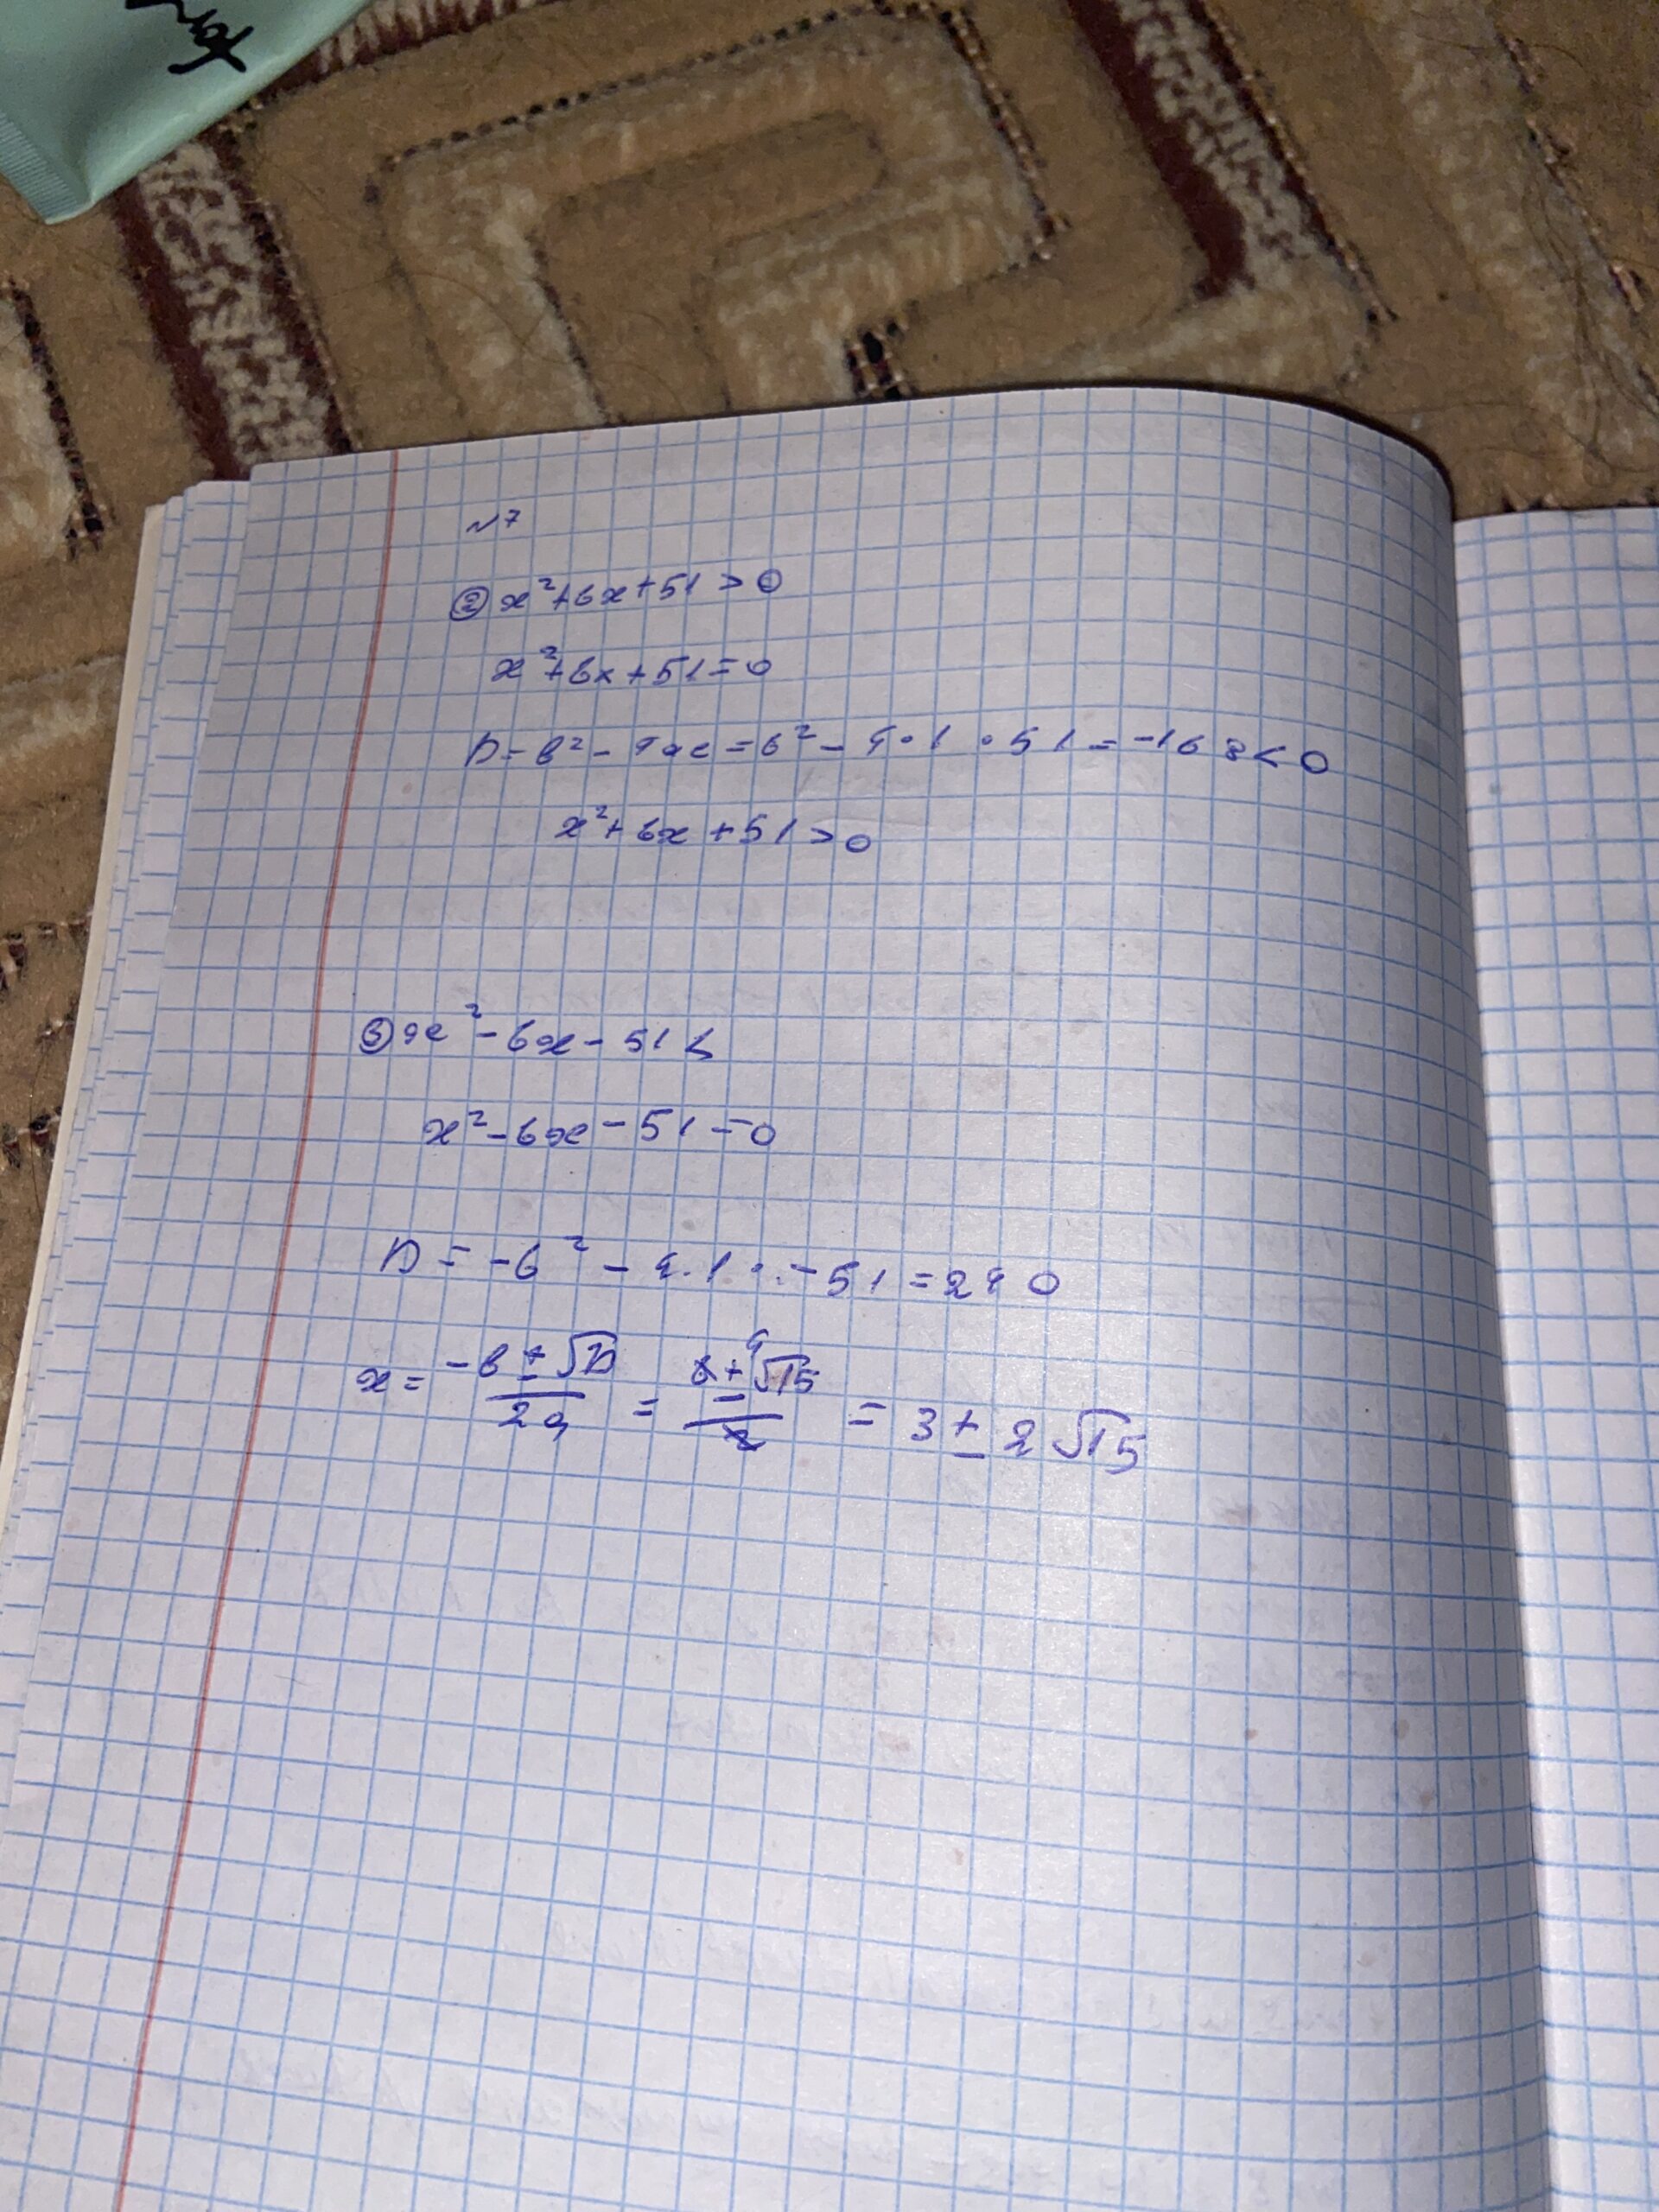 №7
② x²+6x+51>0
x²+6x+51=0
D=b²-4ac=6²-4·1·51=-168<0
x²+6x+51>0
③ x²-6x-51<
x²-6x-51=0
D=-6²-4·1·-51=240
x=(-b±√D)/(2a)=(6±4√15)/2=3±2√15